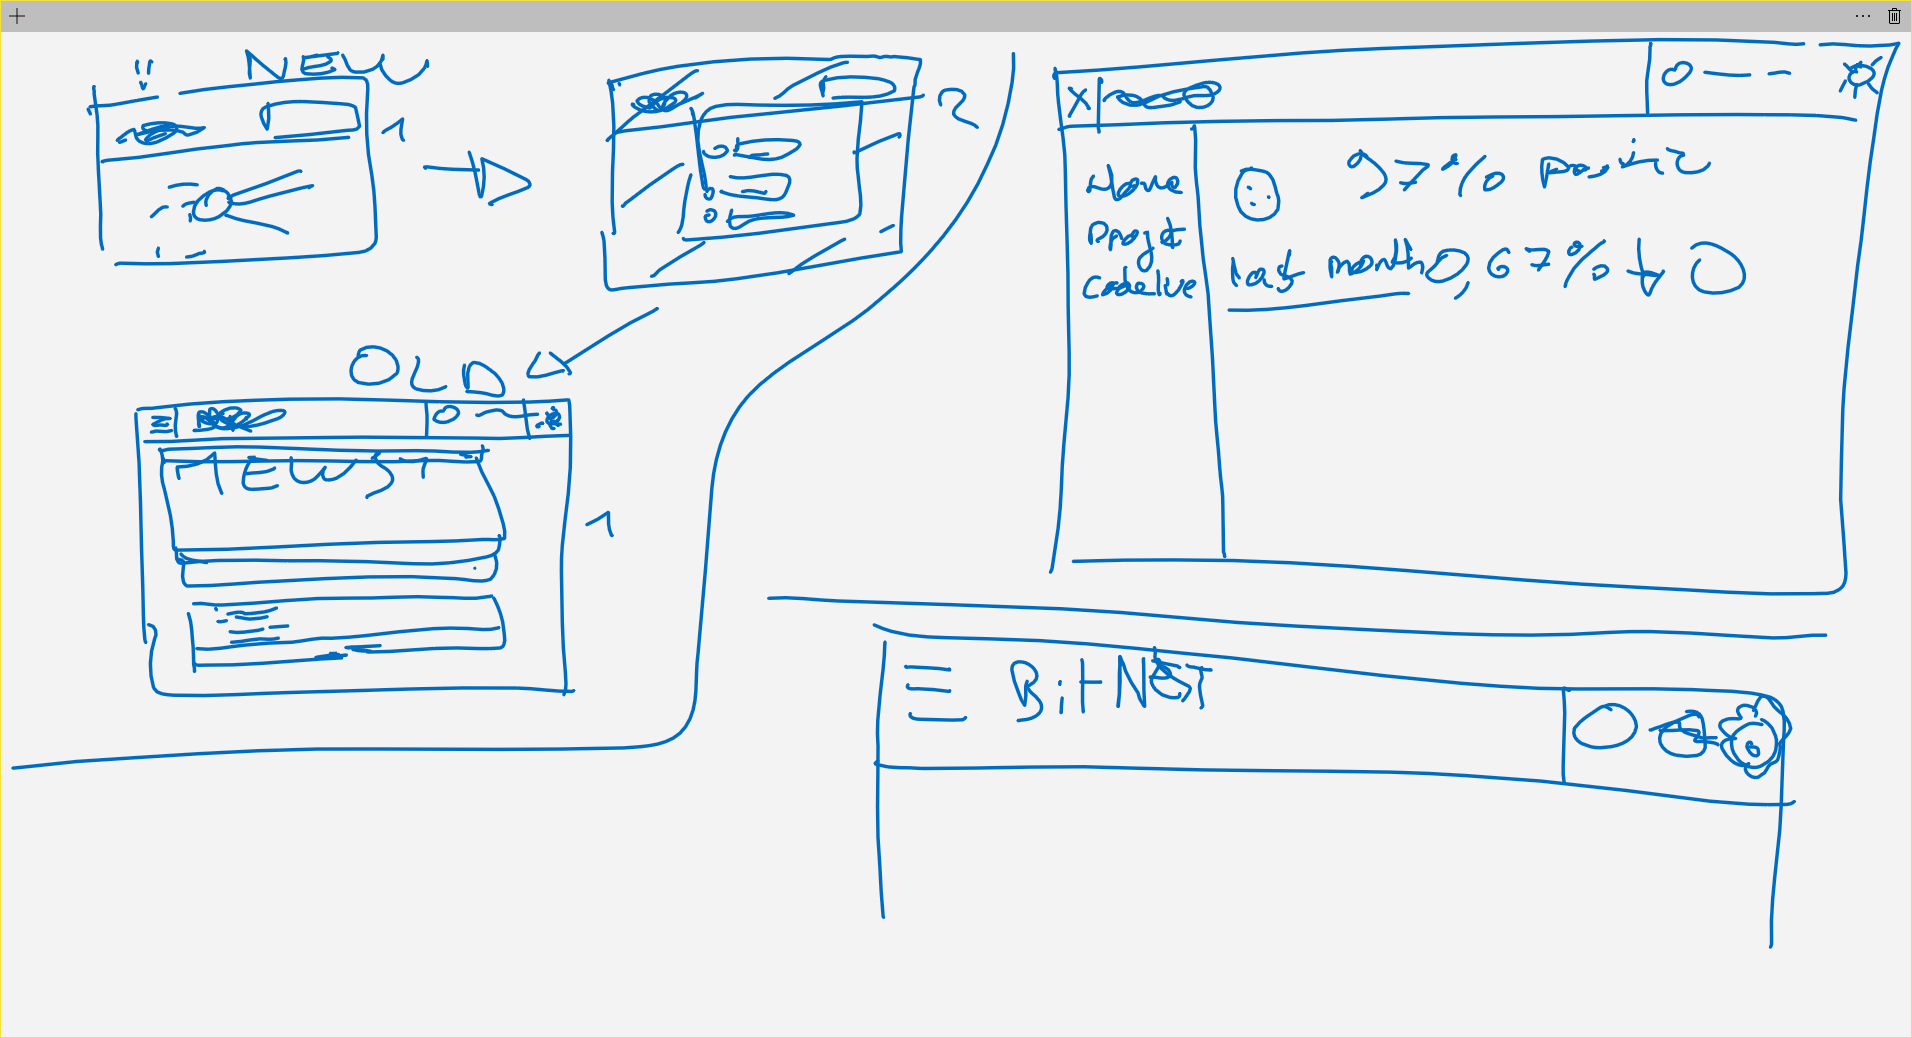 NEW
1
2
OLD
1
X
Home
Projct
Codelive
97% positiv
last month 0,67%
BitNEST